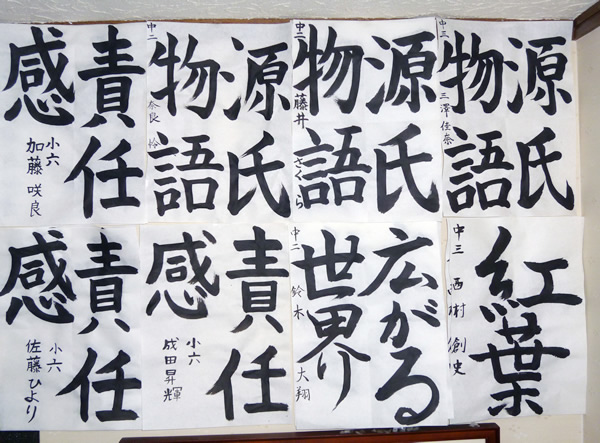 責任
感
小六
加藤 咲良
源氏
物語
中二
奈良 怜
源氏
物語
中二
藤井 さくら
源氏
物語
中三
三澤佳奈
責任
感
小六
佐藤ひより
責任
感
小六
成田昇輝
広がる
世界
中二
鈴木 大翔
紅葉
中三
西村 創史